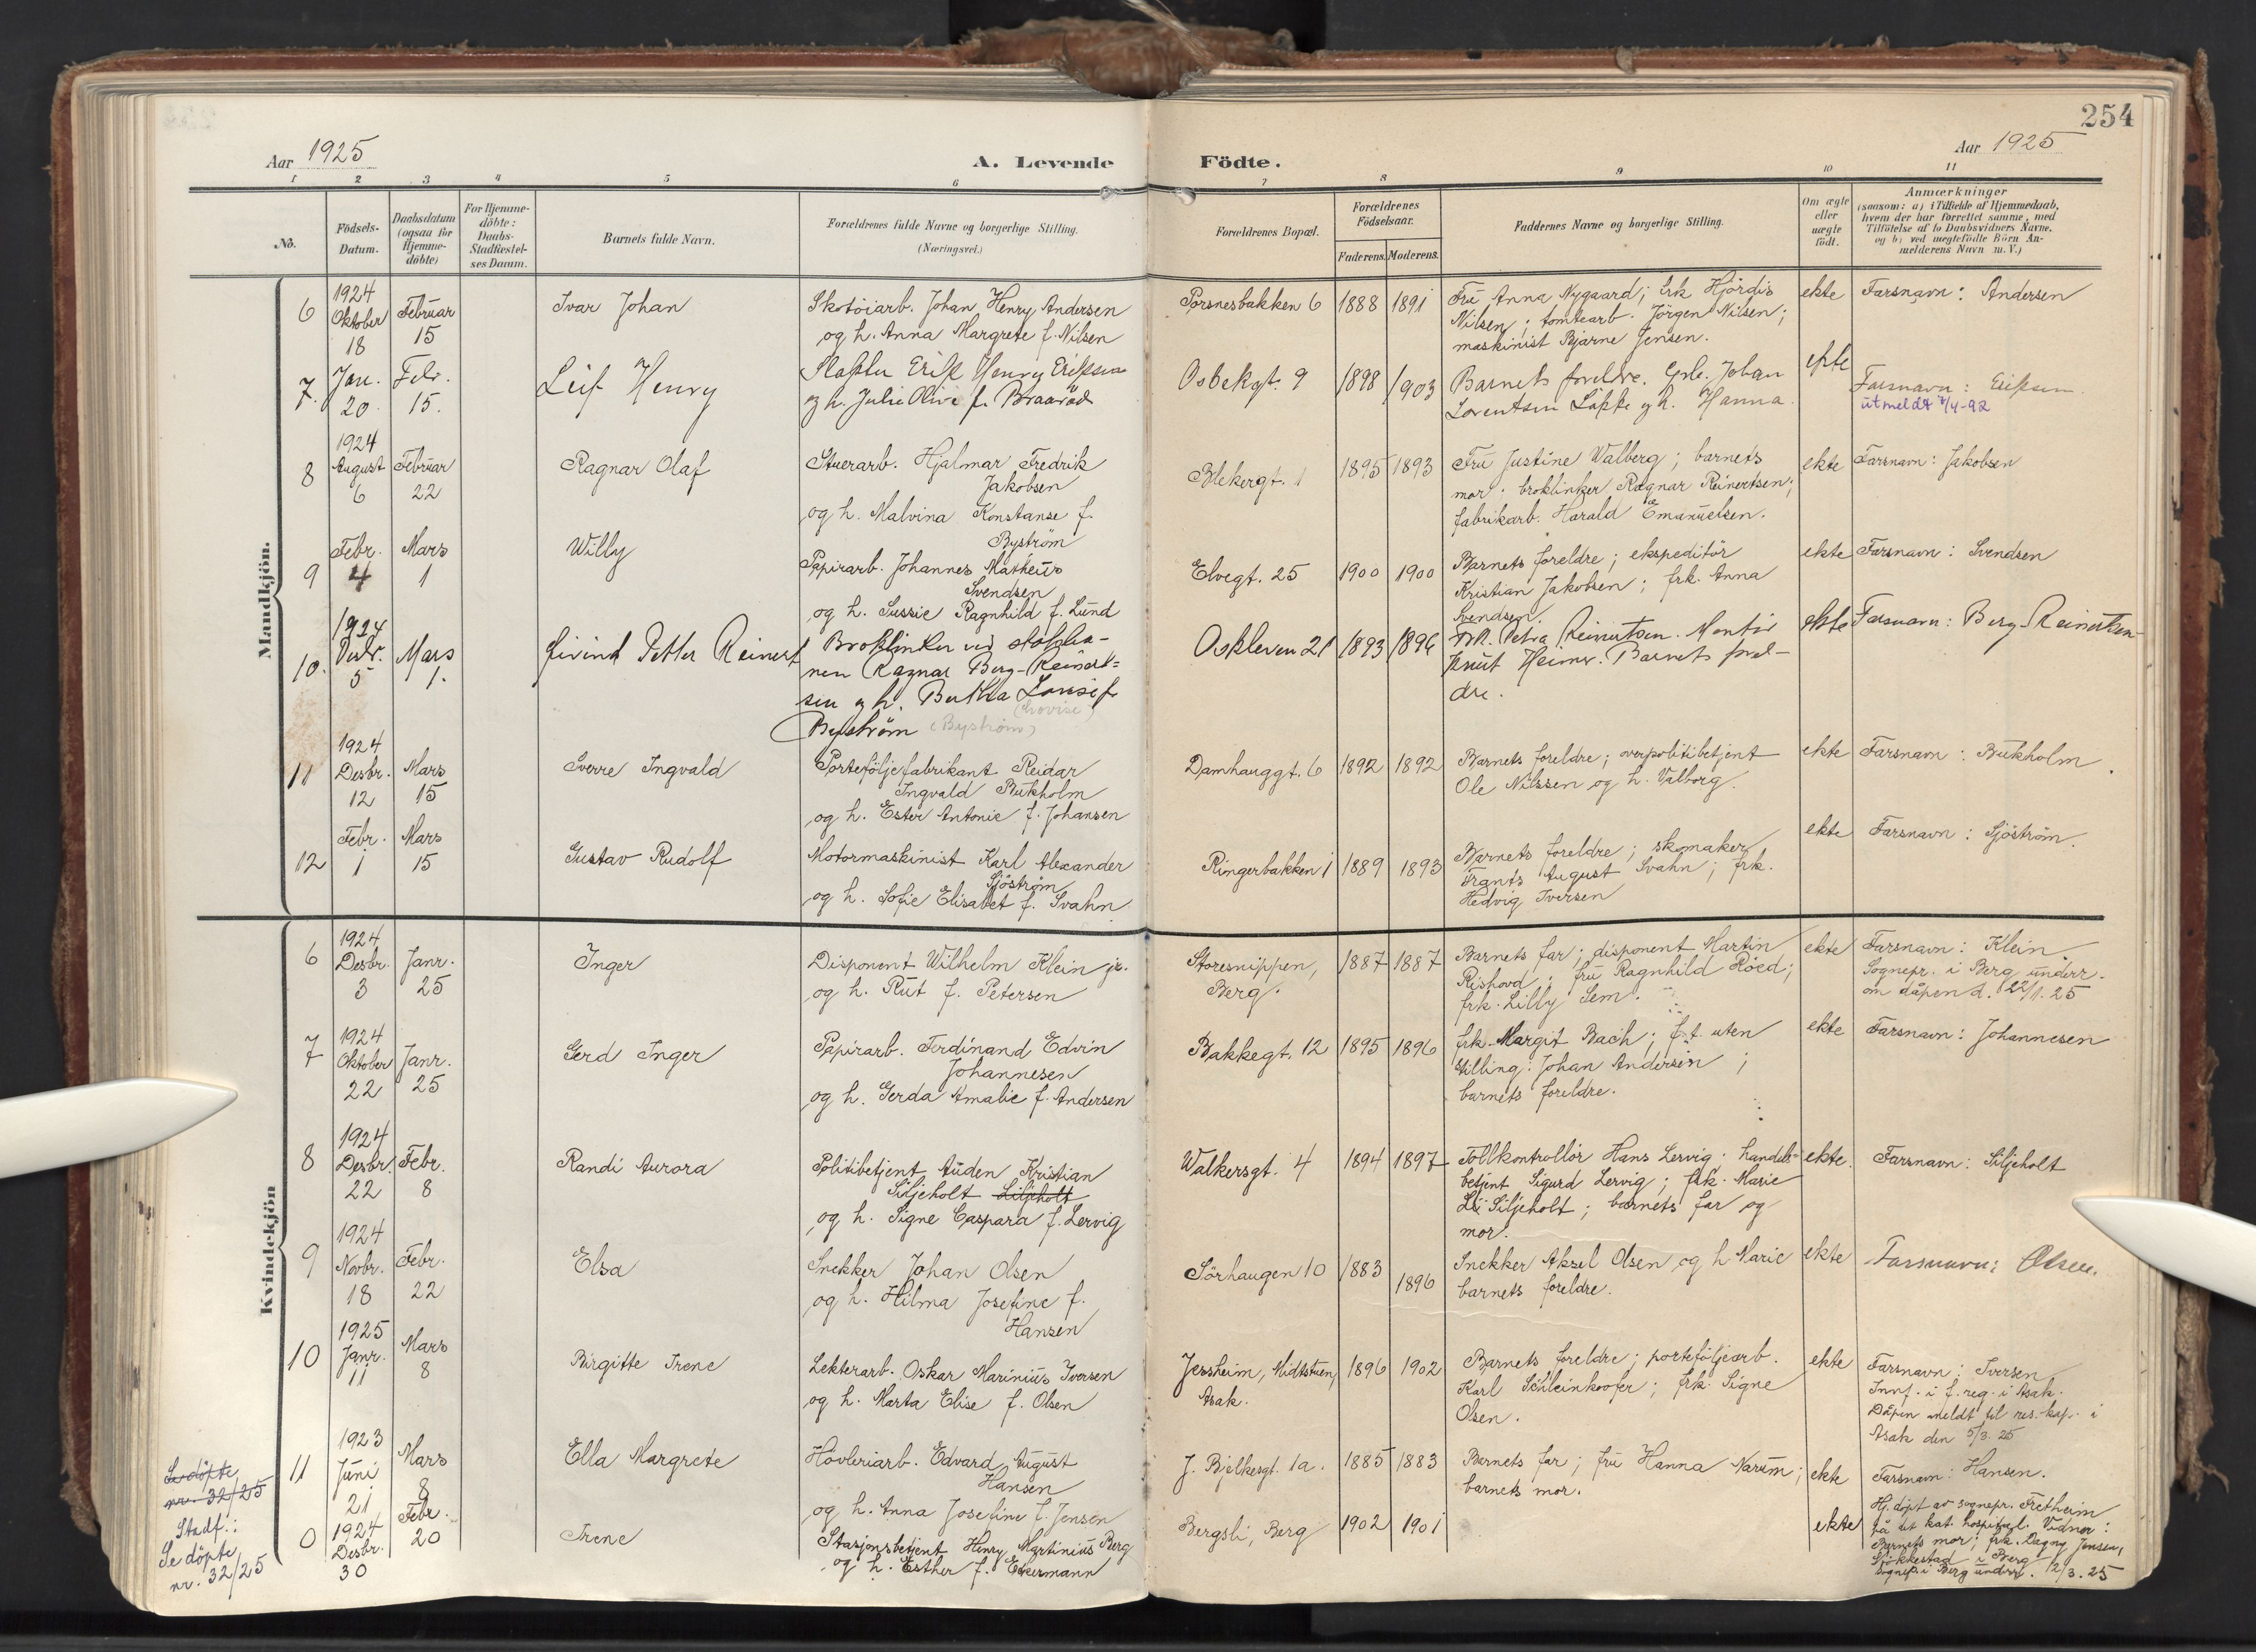 254
Aar 1925
A. Levende Födte.
Aar 1925
1 2 3 4 5 6 7 8 9 10 11
No.
Födsels-
Datum.
Daabsdatum
(ogsaa for
Hjemme-
döbte)
For Hjemme-
döbte:
Daabs-
Stadfæstel-
ses Datum.
Barnets fulde Navn.
Forældrenes fulde Navne og borgerlige Stilling.
(Næringsvei.)
Forældrenes Bopæl.
Forældrenes
Födselsaar.
Faderens. Moderens.
Faddernes Navne og borgerlige Stilling.
Om ægte
eller
uægte
födt.
Anmærkninger
(saasom: a) i Tilfælde af Hjemmedaab,
hvem der har forrettet samme, med
Tilföielse af to Daabsvidners Navne.
og b) ved uægtefödte Börn An-
melderens Navn m. V.)
Mandkjön.
6
1924
Oktober
18
Februar
15
Ivar Johan
Skotöiarb. Johan Henry Andersen
og h. Anna Margrete f. Nilsen
Porsnesbakken 6
1888
1891
Fru Anna Nygaard; frk Hjördis
Nilsen; tomtearb. Jörgen Nilsen;
maskinist Bjarne Jensen.
ekte
Farsnavn: Andersen
7.
Jan.
20
Febr.
15.
Leif Henry
Erik Henry Eriksen
og h. Julie Olive f. Braaröd
Osbekgt. 9
1898
1903
Barnets foreldre. Johan
Lorentsen og h. Hanna.
ekte
Farsnavn: Eriksen
utmeldt 7/4-92
8
1924
August
6
Februar
22
Ragnar Olaf
Stuerarb. Hjalmar Fredrik
Jakobsen
og h. Malvina Konstanse f.
Byström
Blekergt. 1
1895
1893
Fru Justine Walberg; barnets
mor; broklinker Ragnar Reinertsen;
fabrikarb. Harald Emanuelsen.
ekte
Farsnavn: Jakobsen
9
Febr.
4
Mars
1
Willy
Papirarb. Johannes Matheus
Svendsen
og h. Sussie Ragnhild f. Lund
Elvegt. 25
1900
1900
Barnets foreldre; ekspeditör
Kristian Jakobsen; frk. Anna
Svendsen.
ekte
Farsnavn: Svendsen
10.
1924
5
Mars
1.
Eivind Petter Reinert
Broklinker ved
nen Ragnar Berg-Reinert=
sen og h. Bertha Lovise f.
(Lovise)
Byström (Byström)
Oskleven 21
1893
1896
Petra Reinertsen. Montör
Knut Heimer. Barnets forel-
dre.
ekte
Farsnavn: Berg-Reinertsen
11
1924
Desbr.
12
Mars
15
Sverre Ingvald
Porteföljefabrikant Reidar
Ingvald Bukholm
og h. Ester Antonie f. Johansen
Damhauggt. 6
1892
1892
Barnets foreldre; overpolitibetjent
Ole Nilssen og h. Valborg.
ekte
Farsnavn: Bukholm
12
Febr.
1
Mars
15
Gustav Rudolf
Motormaskinist Karl Alexander
Sjöström
og h. Sofie Elisabet f. Svahn
Ringerbakken 1
1889
1893
Barnets foreldre; skomaker
Frants August Svahn; frk.
Hedvig Iversen
ekte
Farsnavn: Sjöström.
Kvindekjön
6
1924
Desbr.
3
Janr.
25
Inger
Disponent Wilhelm Klein jr.
og h. Rut f. Petersen
Storesnippen,
Berg.
1887
1887
Barnets far; disponent Martin
Rishovd; fru Ragnhild Röed;
frk. Lilly Sem.
ekte
Farsnavn: Klein.
Sognepr. i Berg underr.
om dåpen d. 22/1.25
7
1924
Oktober
22
Janr.
25
Gerd Inger
Papirarb. Ferdinand Edvin
Johannesen
og h. Gerda Amalie f. Andersen
Bakkegt. 12
1895
1896
frk. Margit Bach; f.t. uten
stilling: Johan Andersen;
barnets foreldre.
ekte
Farsnavn: Johannesen
8
1924
Desbr.
22
Febr.
8
Randi Aurora
Politibetjent Auden Kristian
Siljeholt Liljeholt
og h. Signe Caspara f. Lervig
Walkersgt. 4
1894
1897
Tollkontrollör Hans Lervig; handels=
betjent Sigurd Lervig; frk. Marie
Li Siljeholt; barnets far og
mor.
ekte.
Farsnavn: Siljeholt
9
1924
Novbr.
18
Febr.
22
Elsa
Snekker Johan Olsen
og h. Hilma Josefine f.
Hansen
Sörhaugen 10
1883
1896
Snekker Aksel Olsen og h. Marie
barnets foreldre.
ekte
Farsnavn: Olsen.
10
1925
Janr.
11
Mars
8
Birgitte Irene
Lekterarb. Oskar Marinius Iversen
og h. Marta Elise f. Olsen
Jessheim, Midtstuen,
Asak.
1896
1902
Barnets foreldre; porteföljearb.
Karl Schleinkoofer; frk. Signe
Olsen.
ekte
Farsnavn: Iversen
Innf. i f. reg. i Asak.
Dåpen meldt til res. kap. i
Asak den 5/3.25
11
1923
Juni
21
Mars
8
Ella Margrete
Hövleriarb. Edvard August
Hansen
og h. Anna Josefine f. Jensen
J. Bjelkesgt. 1a.
1885
1883
Barnets far; fru Hanna Narum;
barnets mor.
ekte
Farsnavn: Hansen.
Se döpte
nr. 32/25
Stadf.:
Se döpte
nr. 32/25
0
1924
Desbr.
30
Febr.
20
Irene
Stasjonsbetjent Henry Martinius Berg
og h. Esther f. Eckermann
Bergsli, Berg
1902
1901
ekte
Hj. döpt av sognepr. Fretheim
på det kat. hospital. Vidner:
Barnets mor; frk. Dagny Jensen,
Sjökkestad i Berg
Sognepr. i Berg underr. 12/3.25